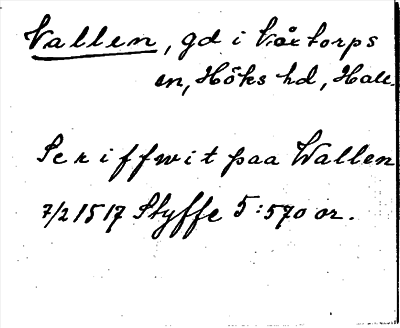 Vallen, gd i Våxtorps
sn, Höks hd, Hall.
Scriffwit paa Wallen
7/2 1517 Styffe 5:570 or.